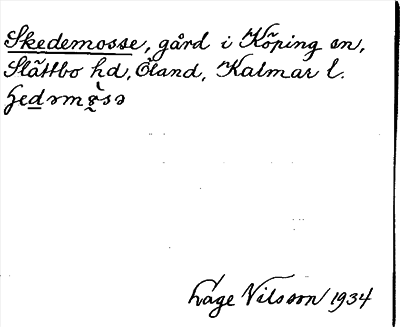 Skedemosse, gård i Köping sn,
Slättbo hd, Öland, Kalmar l.
Låge Nilsson 1934